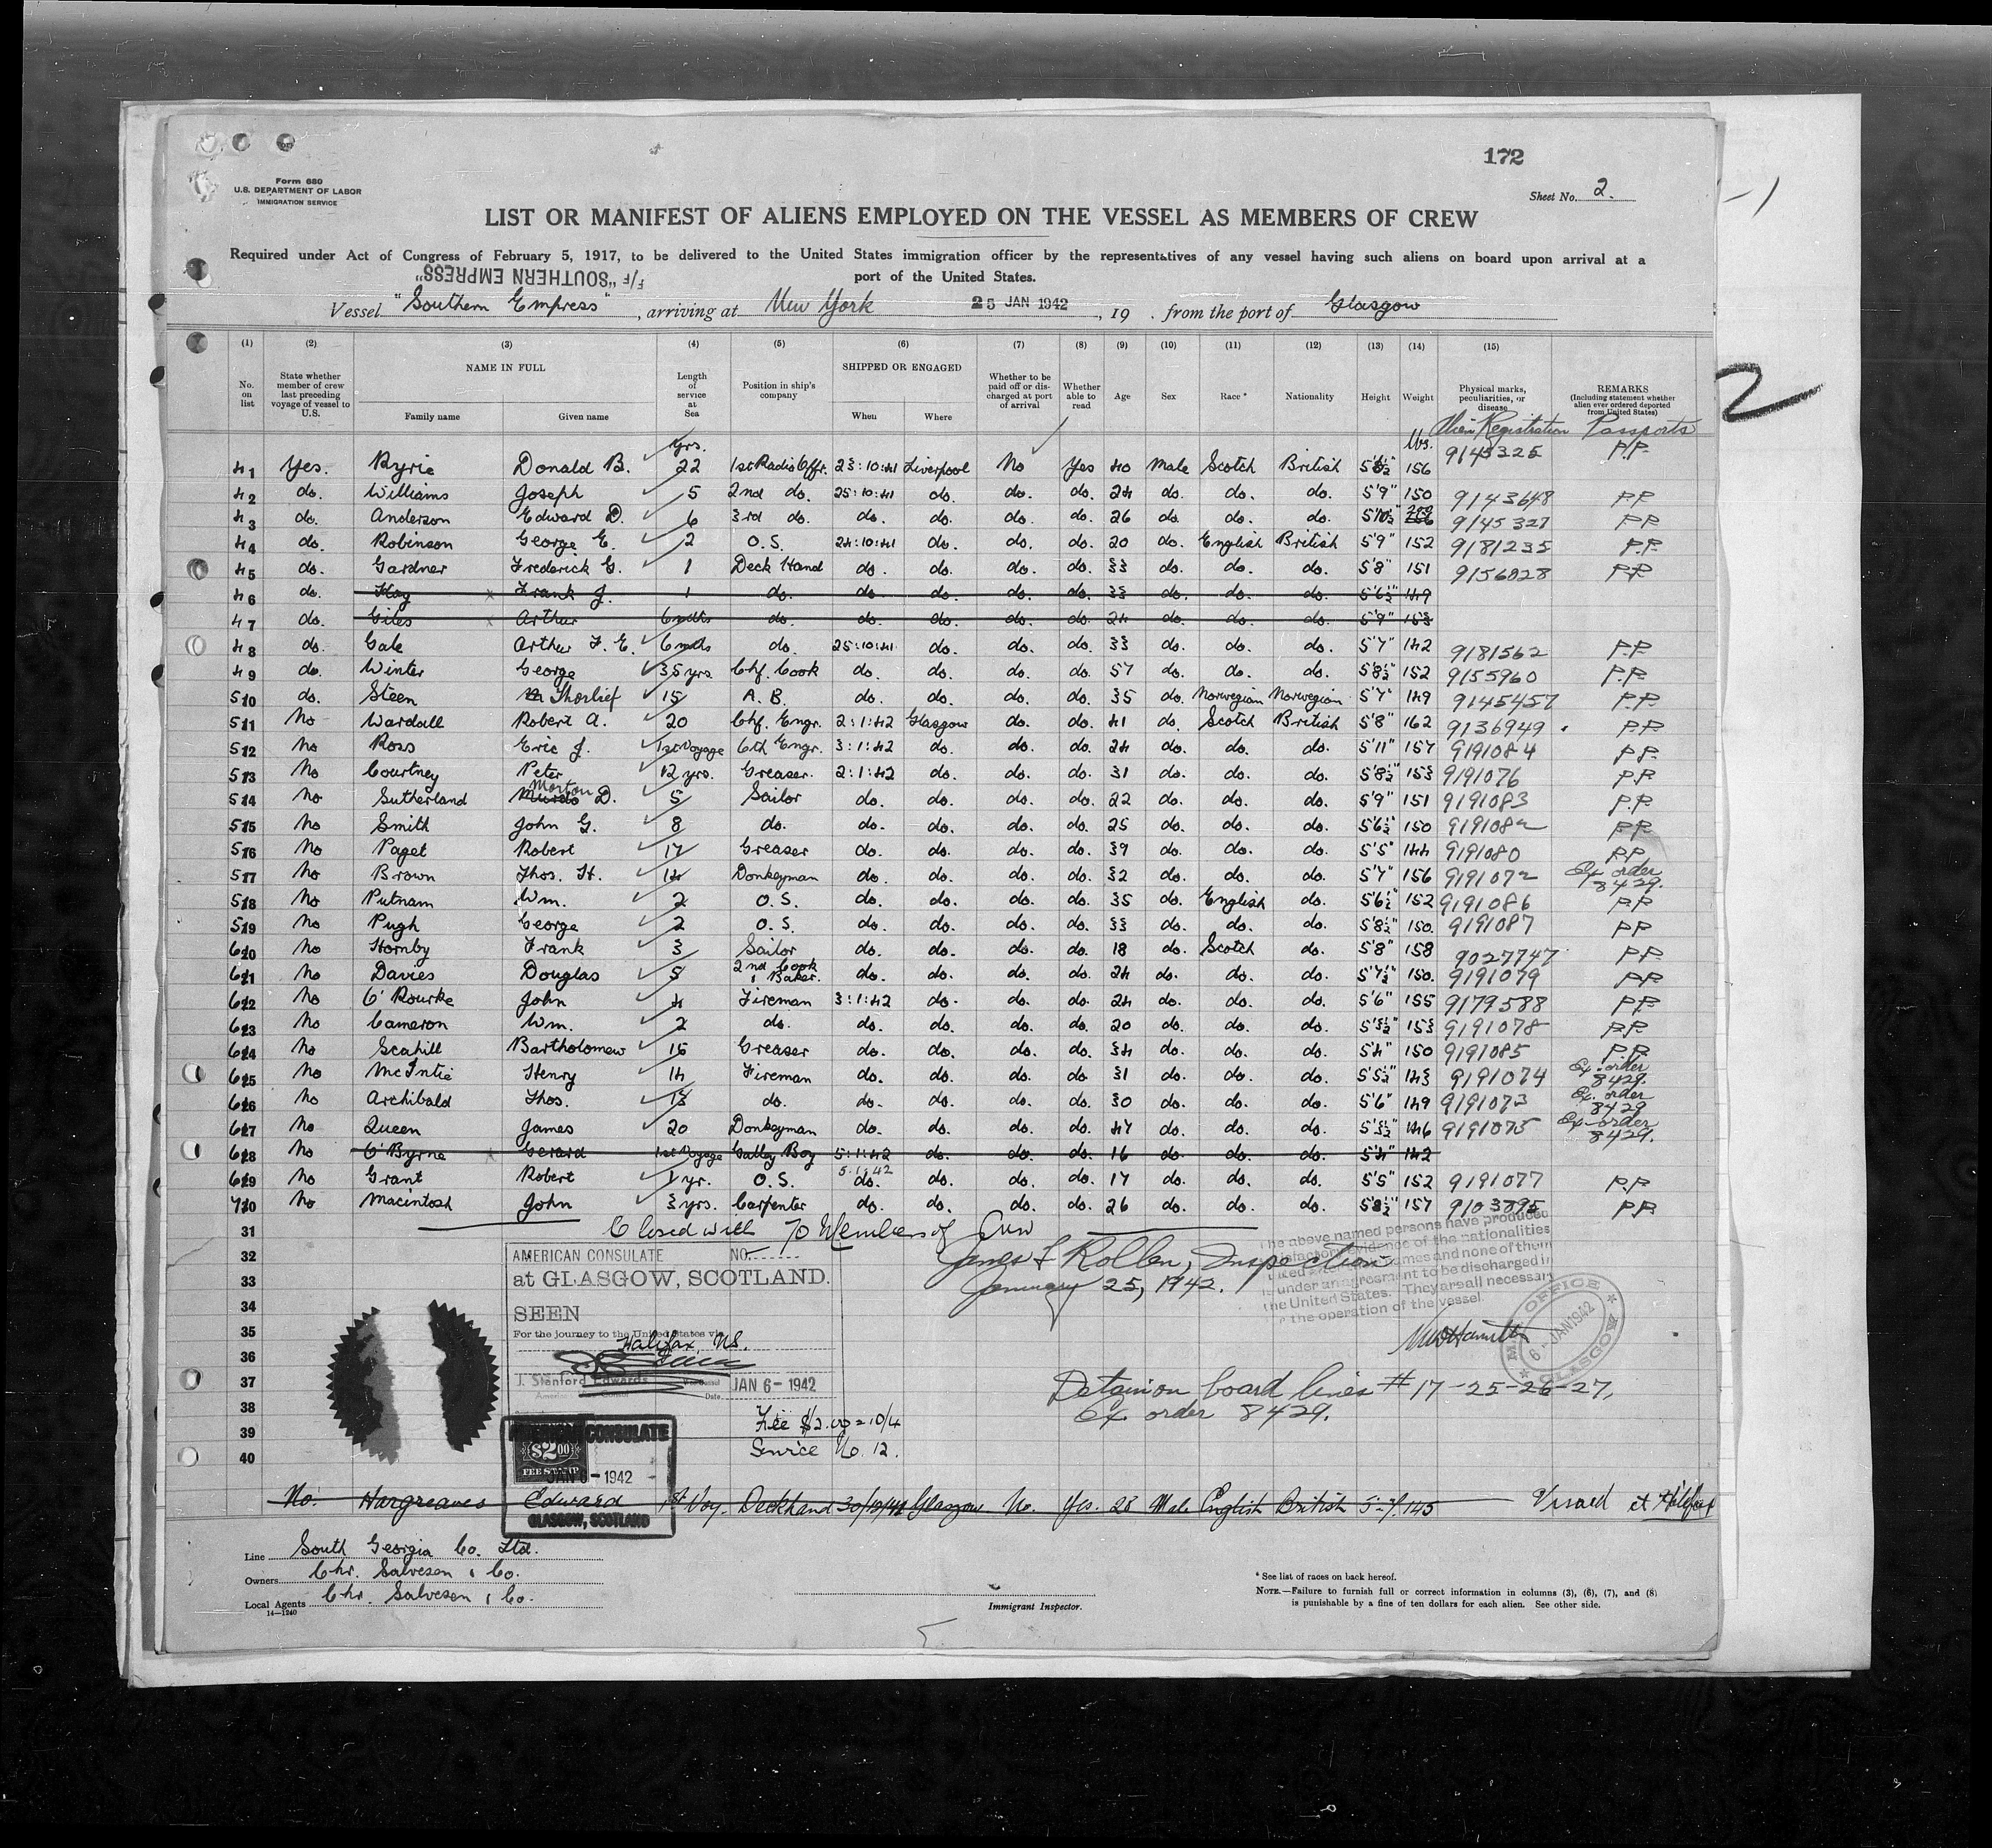 172
Form 680
U.S. DEPARTMENT OF LABOR
IMMIGRATION SERVICE
Sheet No. 2.
LIST OR MANIFEST OF ALIENS EMPLOYED ON THE VESSEL AS MEMBERS OF CREW
Required under Act of Congress of February 5, 1917, to be delivered to the United States immigration officer by the representatives of any vessel having such aliens on board upon arrival at a
port of the United States.
F/F "SOUTHERN EMPRESS"
Vessel "Southern Empress", arriving at New York 25 JAN 1942, 19 . from the port of Glasgow
(1) (2) (3) (4) (5) (6) (7) (8) (9) (10) (11) (12) (13) (14) (15)
No. on list State whether member of crew last preceding voyage of vessel to U.S. NAME IN FULL Family name Given name Length of service at Sea Position in ship's company SHIPPED OR ENGAGED When Where Whether to be paid off or discharged at port of arrival Whether able to read Age Sex Race* Nationality Height Weight Physical marks, peculiarities, or disease REMARKS (Including statement whether alien ever ordered deported from United States)
yrs. lbs. Alien Registration Passports
41 Yes. Ryrie Donald B. 22 1st Radio Offr. 23:10:41 Liverpool No Yes 40 Male Scotch British 156 9145325 P.P.
42 do. Williams Joseph 5 2nd do. 25:10:41 do. do. do. 24 do. do. do. 5'9" 150 9143648 P.P
43 do. Anderson Edward D. 6 3rd do. do. do. do. do. 26 do. do. do. 5'10½" 9145327 P.P
44 do. Robinson George E. 2 O.S. 24:10:41 do. do. do. 20 do. English British 5'9" 152 9181235 P.P.
45 do. Gardner Frederick G. 1 Deck Hand do. do. do. do. 33 do. do. do. 5'8" 151 9156828 P.P.
46 do. Hoy Frank J. 1 do. do. do. do. do. 33 do. do. do. 5'6½" 149
47 do. Giles Arthur 6 mths do. do. do. do. do. 24 do. do. do. 5'9" 153
48 do. Gale Arthur F. E. 6 mths do. 25:10:41 do. do. do. 33 do. do. do. 5'7" 142 9181562 P.P.
49 do. Winter George 35 yrs. Chf. Cook do. do. do. do. 57 do. do. do. 5'8½" 152 9155960 P.P.
510 do. Steen Thorlief 15 A.B. do. do. do. do. 35 do. Norwegian Norwegian 5'7" 149 9145457 P.P.
511 No Wardall Robert A. 20 Chf. Engr. 2:1:42 Glasgow do. do. 41 do. Scotch British 5'8" 162 9136949 P.P.
512 No Ross Eric J. 1st Voyage 6th Engr. 3:1:42 do. do. do. 24 do. do. do. 5'11" 157 9191084 P.P.
513 No Courtney Peter 12 yrs. Greaser. 2:1:42 do. do. do. 31 do. do. do. 5'8½" 153 9191076 P.P
514 No Sutherland Murdo Morton D. 5 Sailor do. do. do. do. 22 do. do. do. 5'9" 151 9191083 P.P.
515 No Smith John G. 8 do. do. do. do. do. 25 do. do. do. 5'6½" 150 9191082 P.P.
516 No Paget Robert 17 Greaser do. do. do. do. 39 do. do. do. 5'5" 144 9191080 P.P
517 No Brown Thos. H. 14 Donkeyman do. do. do. do. 32 do. do. do. 5'7" 156 9191072 Ex order 8429.
518 No Putnam Wm. 2 O.S. do. do. do. do. 35 do. English do. 5'6½" 152 9191086 P.P
519 No Pugh George 2 O.S. do. do. do. do. 33 do. do. do. 5'8½" 150. 9191087 P.P
620 No Hornby Frank 3 Sailor do. do. do. do. 18 do. Scotch do. 5'8" 158 9027747 P.P.
621 No Davies Douglas 5 2nd Cook & Baker. do. do. do. do. 24 do. do. do. 5'7½" 150. 9191079 P.P.
622 No O'Rourke John 4 Fireman 3:1:42 do. do. do. 24 do. do. do. 5'6" 155 9179588 P.P.
623 No Cameron Wm. 2 do. do. do. do. do. 20 do. do. do. 153 9191078 P.P.
624 No Scahill Bartholomew 15 Greaser do. do. do. do. 34 do. do. do. 5'4" 150 9191085 P.P.
625 No McIntie Henry 14 Fireman do. do. do. do. 31 do. do. do. 5'5½" 143 9191074 Ex. order 8429.
626 No Archibald Thos. 13 do. do. do. do. do. 30 do. do. do. 5'6" 149 9191073 Ex. order 8429
627 No Queen James 20 Donkeyman do. do. do. do. 47 do. do. do. 146 9191075 Ex order 8429.
628 No O'Byrne Gerard 1st Voyage Galley Boy 5:1:42 do. do. do. 16 do. do. do. 5'4" 142
629 No Grant Robert 1 yr. O.S. 5.1.42 do. do. do. do. 17 do. do. do. 5'5" 152 9191077 P.P
730 No Macintosh John 3 yrs. Carpenter do. do. do. do. 26 do. do. do. 5'8½" 157 9103895 P.P.
31 Closed with 70 Members of Crew
32 James F Rollen, Inspection
33 January 25, 1942.
34
35
36
37
38
39
40
AMERICAN CONSULATE NO.
at GLASGOW, SCOTLAND.
SEEN
For the journey to the United States via
Halifax, N.S.
J. Stanford Edwards
Date JAN 6-1942
Fee $2.00 = 10/4
Service No. 12.
The above named persons have produced
satisfactory evidence of the nationalities
names and none of them
is under an agreement to be discharged in
the United States. They are all necessary
to the operation of the vessel.
OFFICE
6 JAN 1942
GLASGOW
Detain on board lines # 17-25-26-27,
Ex order 8429.
AMERICAN CONSULATE
$2.00
FEE STAMP
JAN 6-1942
GLASGOW, SCOTLAND
No. Hargreaves Edward 1st Voy. Deckhand 30/12/41 Glasgow No. Yes. 28 Male English British 5-7. 145 Visaed at Halifax
Line South Georgia Co. Ltd.
Owners Chr. Salvesen & Co.
Local Agents Chr. Salvesen & Co.
14-1240
Immigrant Inspector.
* See list of races on back hereof.
NOTE.—Failure to furnish full or correct information in columns (3), (6), (7), and (8)
is punishable by a fine of ten dollars for each alien. See other side.
2
-1